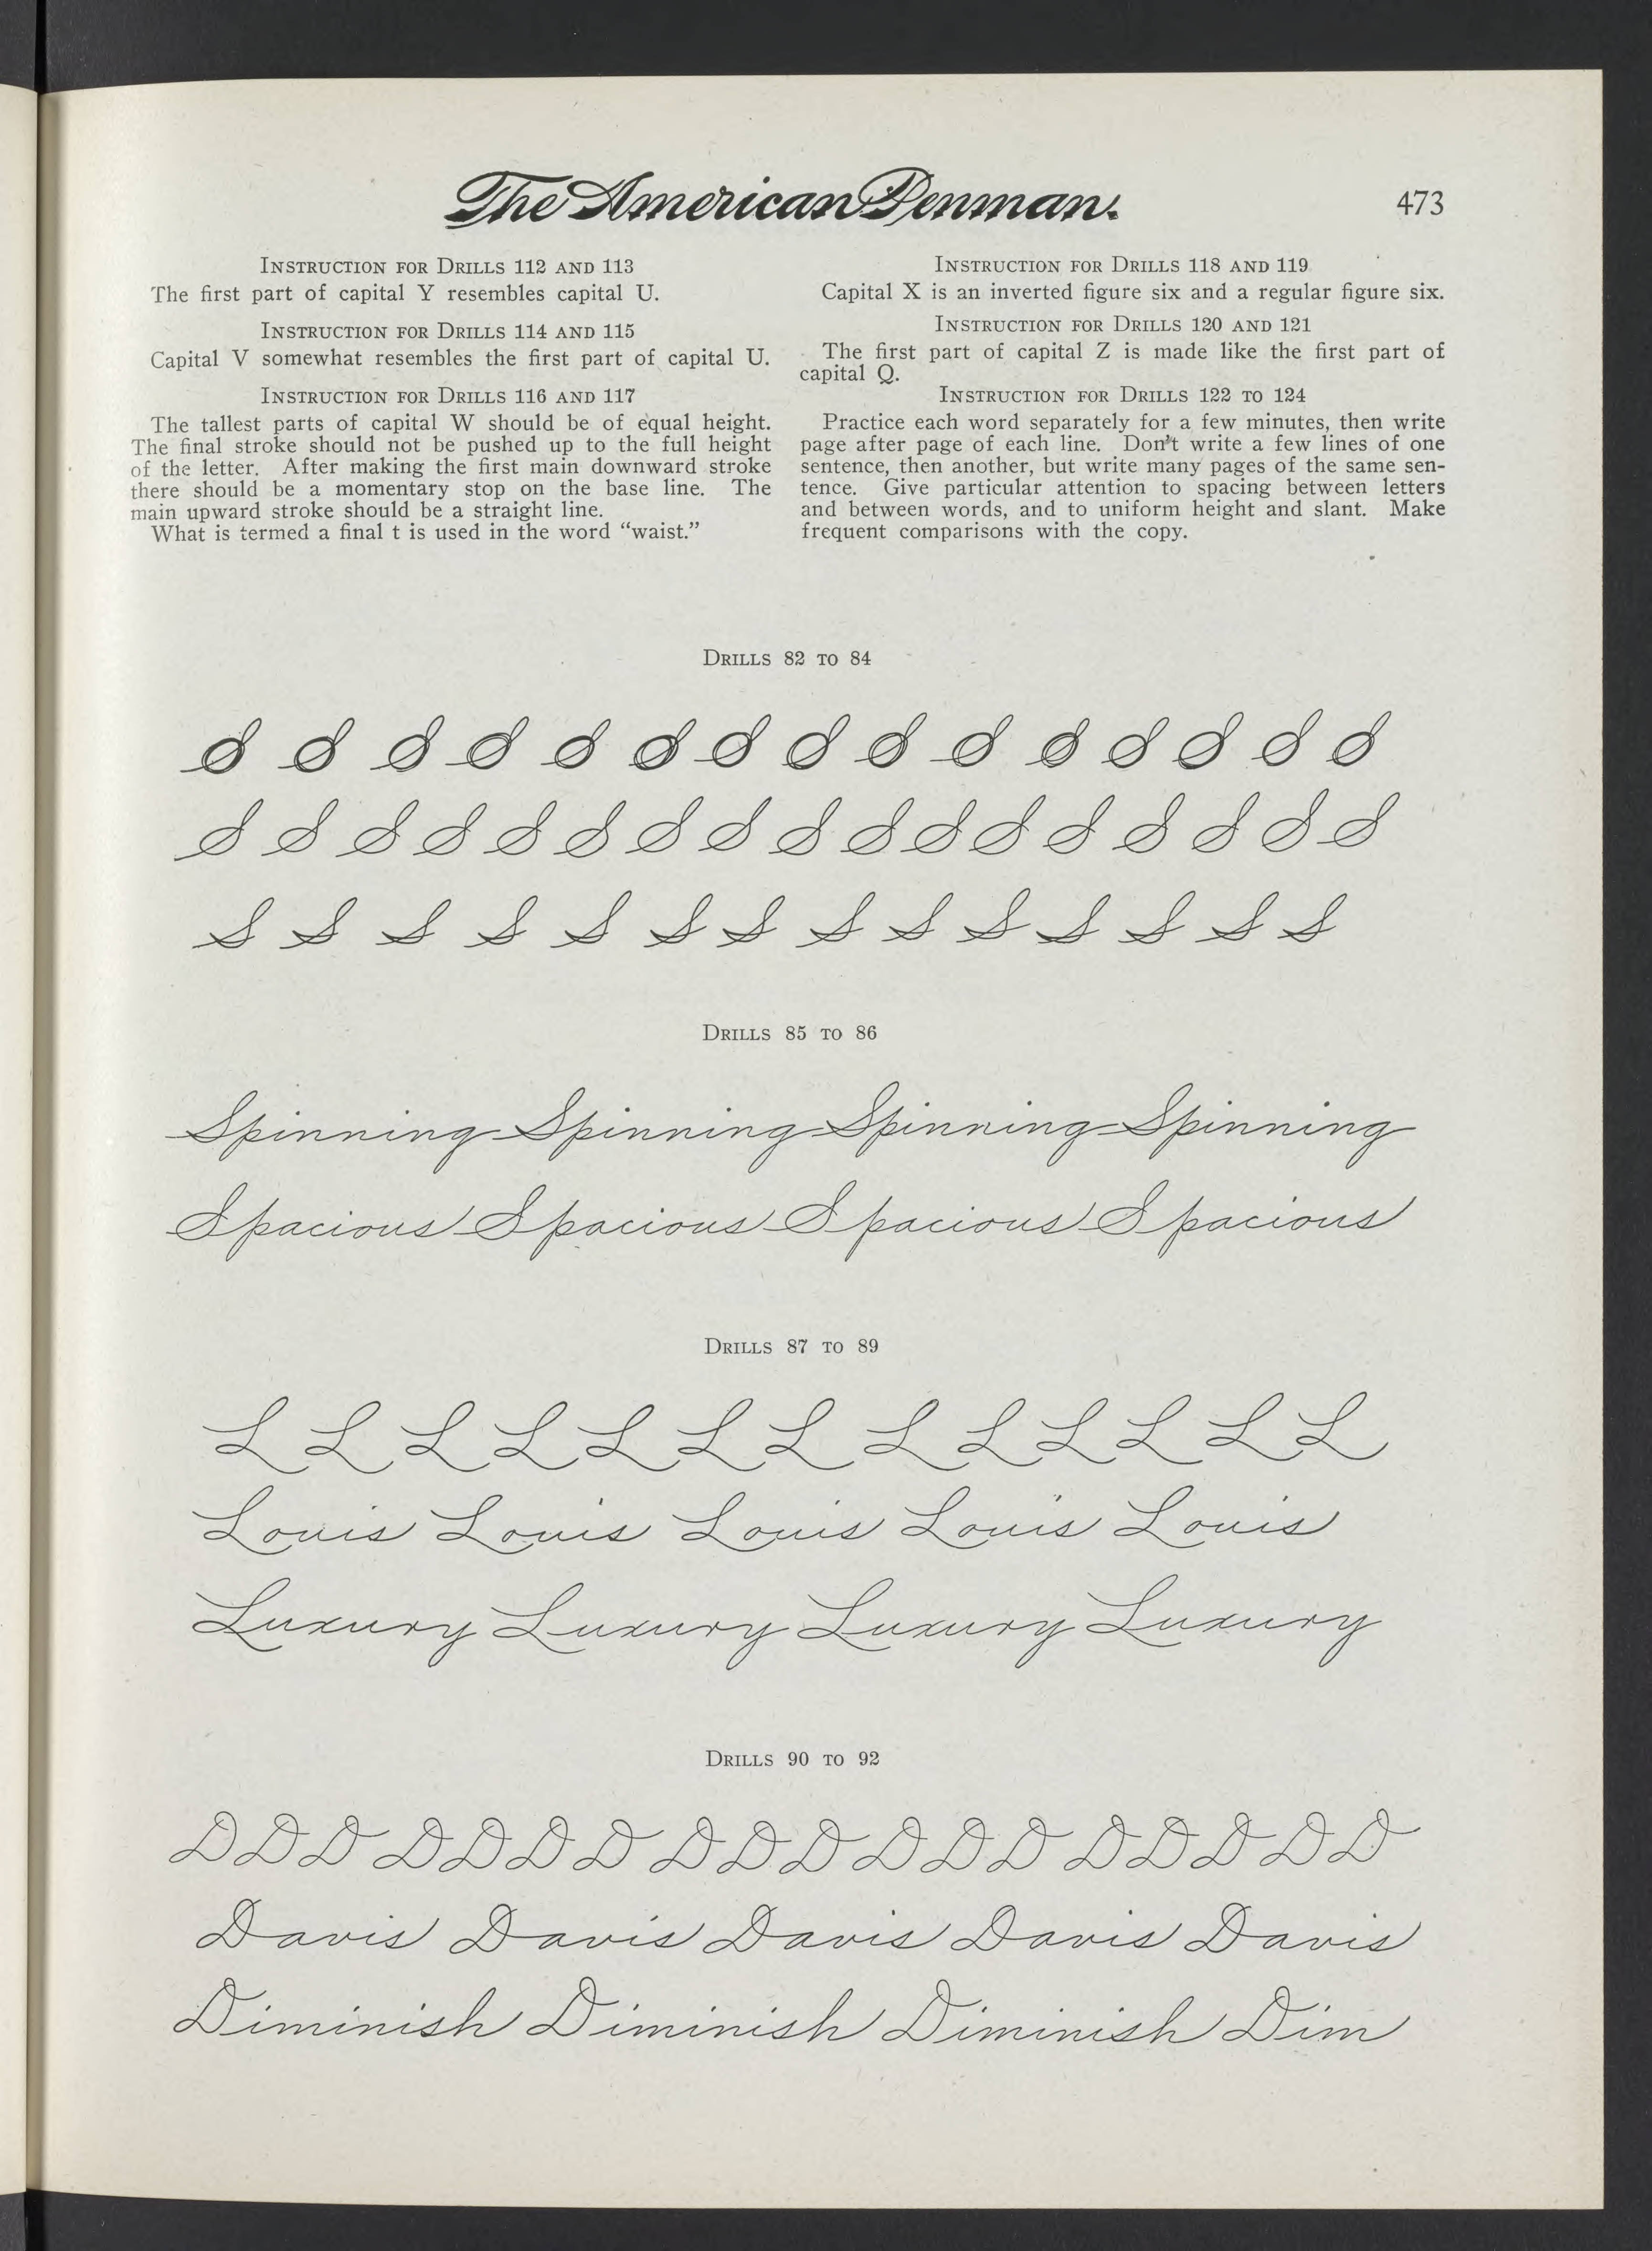 The American Penman.
473
INSTRUCTION FOR DRILLS 112 AND 113
The first part of capital Y resembles capital U.
INSTRUCTION FOR DRILLS 114 AND 115
Capital V somewhat resembles the first part of capital U.
INSTRUCTION FOR DRILLS 116 AND 117
The tallest parts of capital W should be of equal height.
The final stroke should not be pushed up to the full height
of the letter. After making the first main downward stroke
there should be a momentary stop on the base line. The
main upward stroke should be a straight line.
What is termed a final t is used in the word “waist.”
INSTRUCTION FOR DRILLS 118 AND 119
Capital X is an inverted figure six and a regular figure six.
INSTRUCTION FOR DRILLS 120 AND 121
The first part of capital Z is made like the first part of
capital Q.
INSTRUCTION FOR DRILLS 122 TO 124
Practice each word separately for a few minutes, then write
page after page of each line. Don't write a few lines of one
sentence, then another, but write many pages of the same sen-
tence. Give particular attention to spacing between letters
and between words, and to uniform height and slant. Make
frequent comparisons with the copy.
DRILLS 82 TO 84
S S S S S S S S S S S S S S S
S S S S S S S S S S S S S S S S S
S S S S S S S S S S S S S S
DRILLS 85 TO 86
Spinning Spinning Spinning Spinning
Spacious Spacious Spacious Spacious
DRILLS 87 TO 89
L L L L L L L L L L L L L
Louis Louis Louis Louis Louis
Luxury Luxury Luxury Luxury
DRILLS 90 TO 92
D D D D D D D D D D D D D D D D D D
Davis Davis Davis Davis Davis
Diminish Diminish Diminish Dim